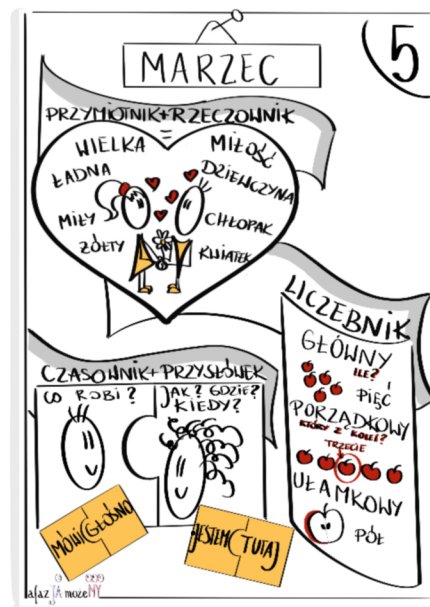 MARZEC
5
PRZYMIOTNIK+RZECZOWNIK
=
WIELKA MIŁOŚĆ
ŁADNA DZIEWCZYNA
MIŁY CHŁOPAK
ŻÓŁTY KWIATEK
LICZEBNIK
GŁÓWNY
ILE?
PIĘĆ
I
PORZĄDKOWY
KTÓRY Z KOLEI?
TRZECIE
UŁAMKOWY
PÓŁ
CZASOWNIK+PRZYSŁÓWEK
CO ROBI?
JAK? GDZIE?
KIEDY?
MÓWI GŁOŚNO
JESTEM TUTAJ
afaz JA może NY